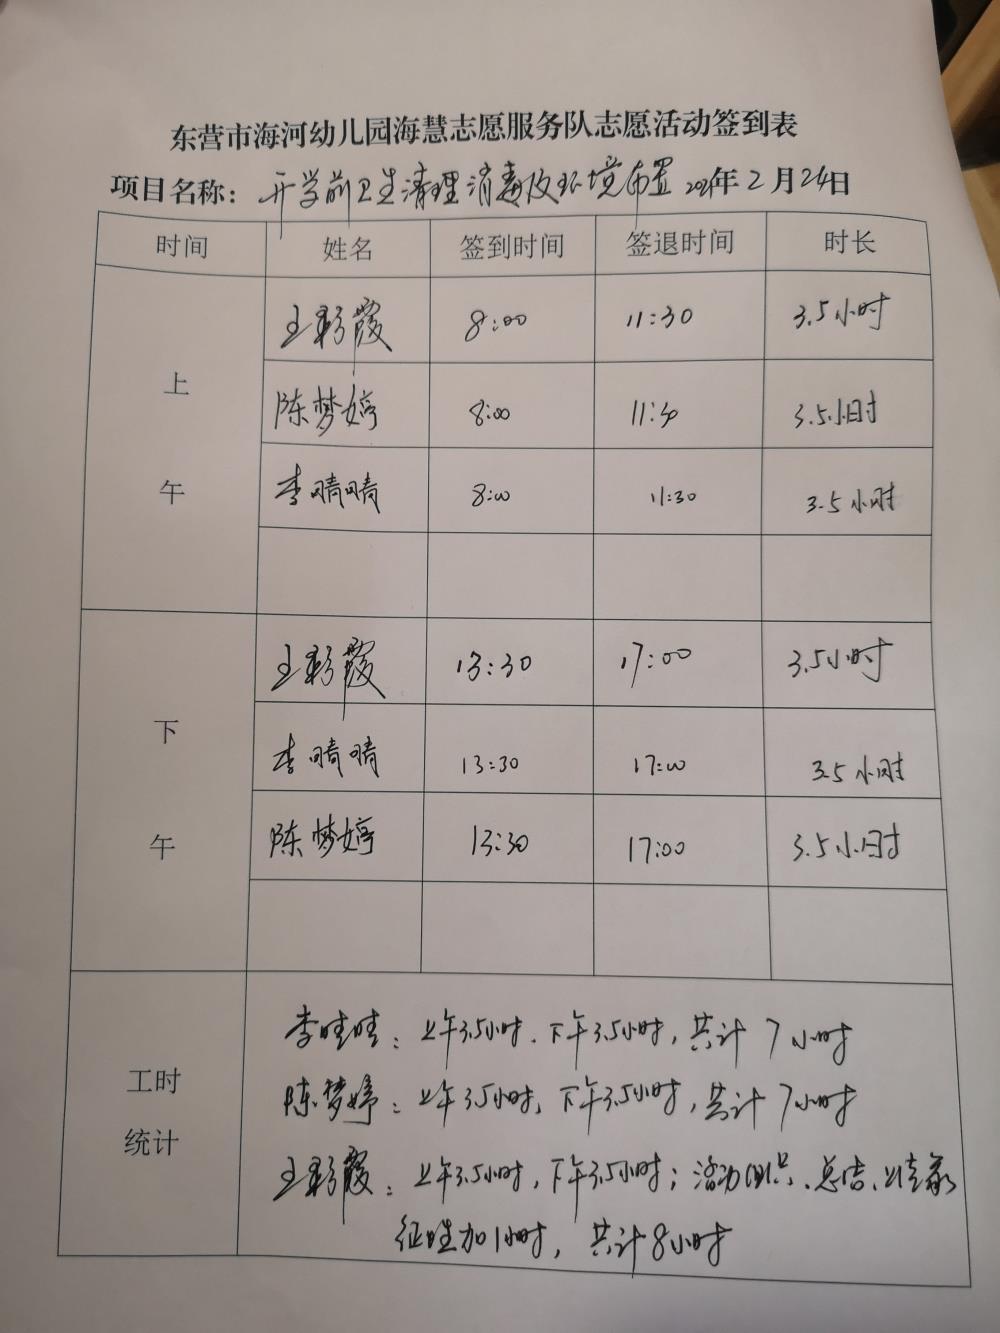 东营市海河幼儿园海慧志愿服务队志愿活动签到表
项目名称：开学前卫生清理消毒及环境布置 2021年2月24日
时间 姓名 签到时间 签退时间 时长
上午
王彩霞 8:00 11:30 3.5小时
陈梦婷 8:00 11:30 3.5小时
李晴晴 8:00 11:30 3.5小时
下午
王彩霞 13:30 17:00 3.5小时
李晴晴 13:30 17:00 3.5小时
陈梦婷 13:30 17:00 3.5小时
工时
统计
李晴晴：上午3.5小时、下午3.5小时，共计7小时
陈梦婷：上午3.5小时，下午3.5小时，共计7小时
王彩霞：上午3.5小时，下午3.5小时；活动组织、总结、
加1小时，共计8小时